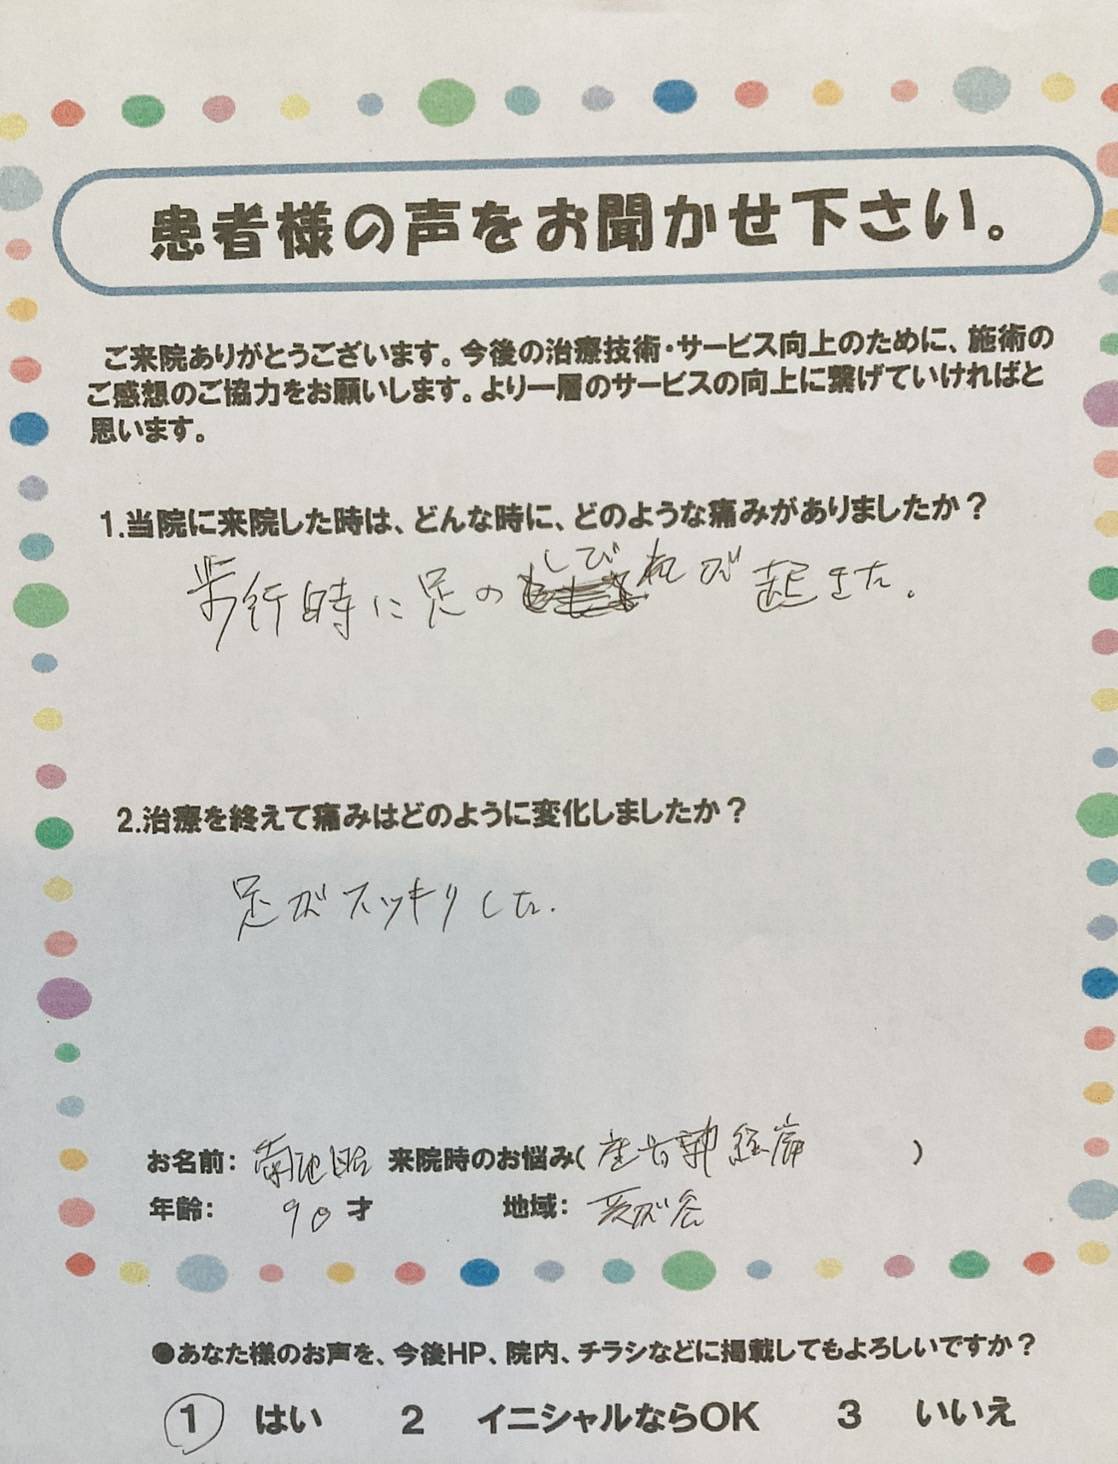 患者様の声をお聞かせ下さい。
ご来院ありがとうございます。今後の治療技術・サービス向上のために、施術の
ご感想のご協力をお願いします。より一層のサービスの向上に繋げていければと
思います。
1.当院に来院した時は、どんな時に、どのような痛みがありましたか？
歩行時に足のしびれが起きた。
2.治療を終えて痛みはどのように変化しましたか？
足がスッキリした.
お名前: 菊地昭 来院時のお悩み( 坐骨神経痛 )
年齢: 90才 地域:
●あなた様のお声を、今後HP、院内、チラシなどに掲載してもよろしいですか？
1 はい 2 イニシャルならOK 3 いいえ